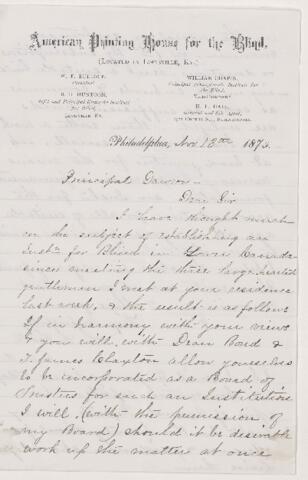 American Printing House for the Blind,
(Located in Louisville, Ky.)
W. F. BULLOCK,
President
B. B. HUNTOON,
Sec'y and Principal Kentucky Institute
for Blind,
LOUISVILLE, KY.
WILLIAM CHAPIN,
Principal Pennsylvania Institute for
the Blind,
H. L. HALL,
General and Fin. Agent,
Philadelphia, Nov. 13th 1873.
Principal Dawson
Dear Sir
I have thought much
on the subject of establishing an
Instn for Blind in Lower Canada
since meeting the three large hearted
gentlemen I met at your residence
last week, & the result is as follows
If in harmony with your views
& you will, with Dean Bond &
T. James Claxton allow yourselves
to be incorporated as a Board of
Trustees for such an Institution
I will, (with the permission of
my Board) should it be desirable
work up the matter at once